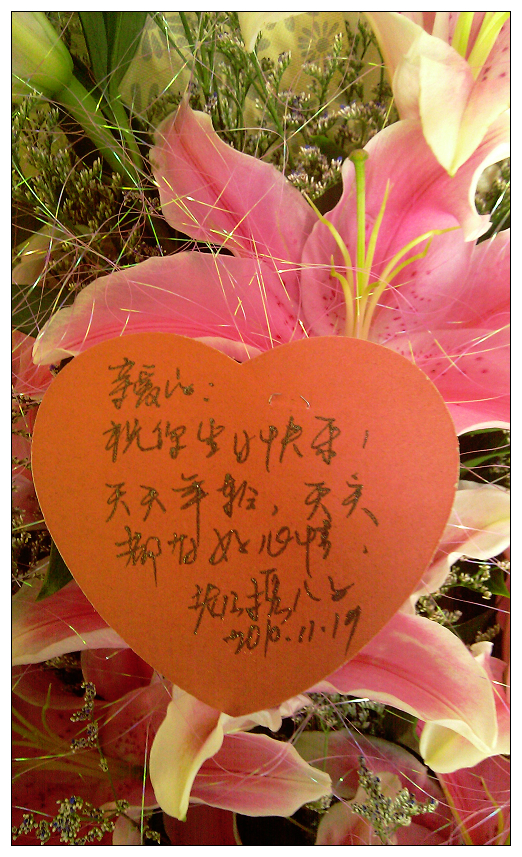 亲爱的:
祝你生日快乐,
天天年轻,天天
都有好心情.
2010.11.19